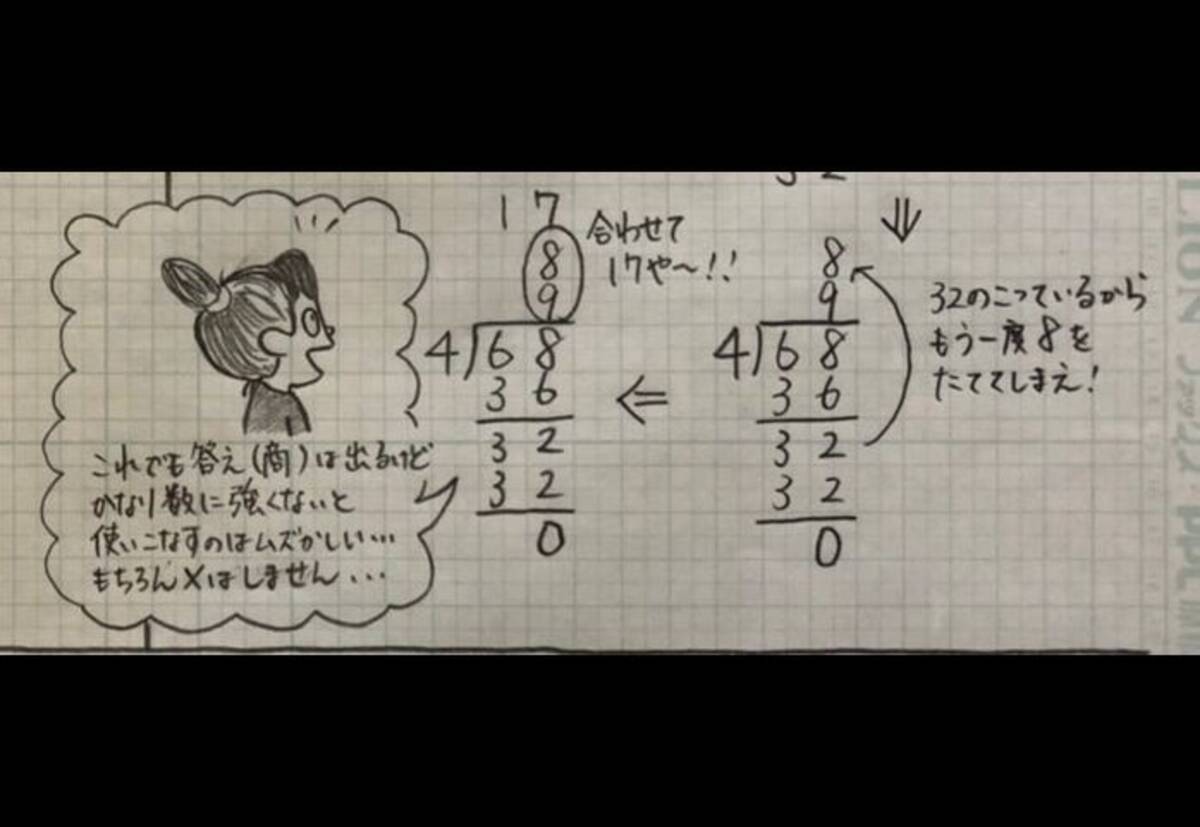 17
8
9
合わせて
17や〜!!
4)68
36
32
32
0
⇐
⇓
8
9
4)68
36
32
32
0
32のこっているから
もう一度8を
たててしまえ!
これでも答え(商)は出るけど
かなり数に強くないと
使いこなすのはムズかしい…
もちろん×はしません...